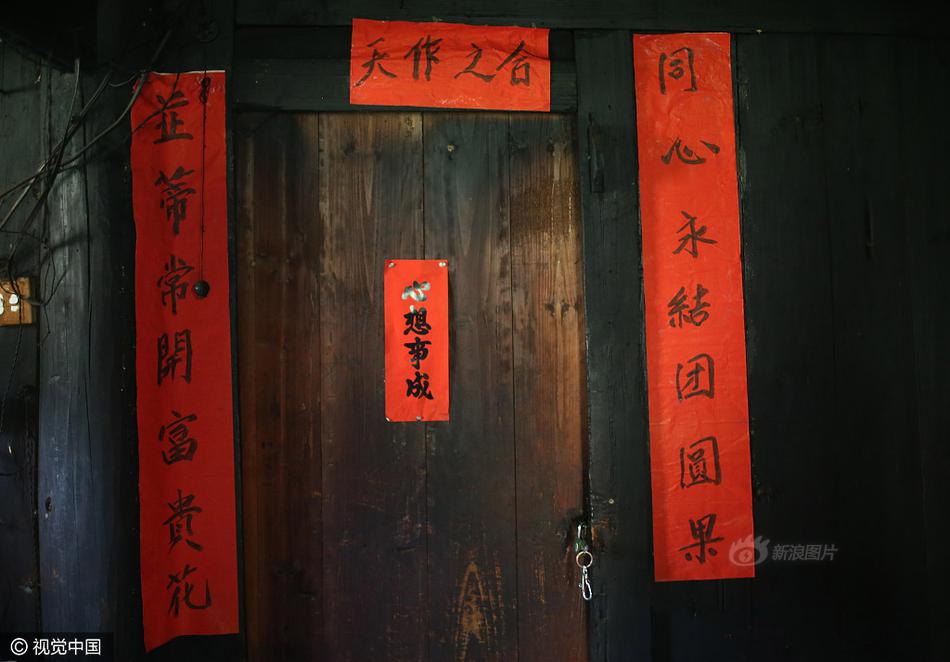 天作之合
同心永结团圆果
並蒂常開富貴花
心想事成
新浪图片
© 视觉中国